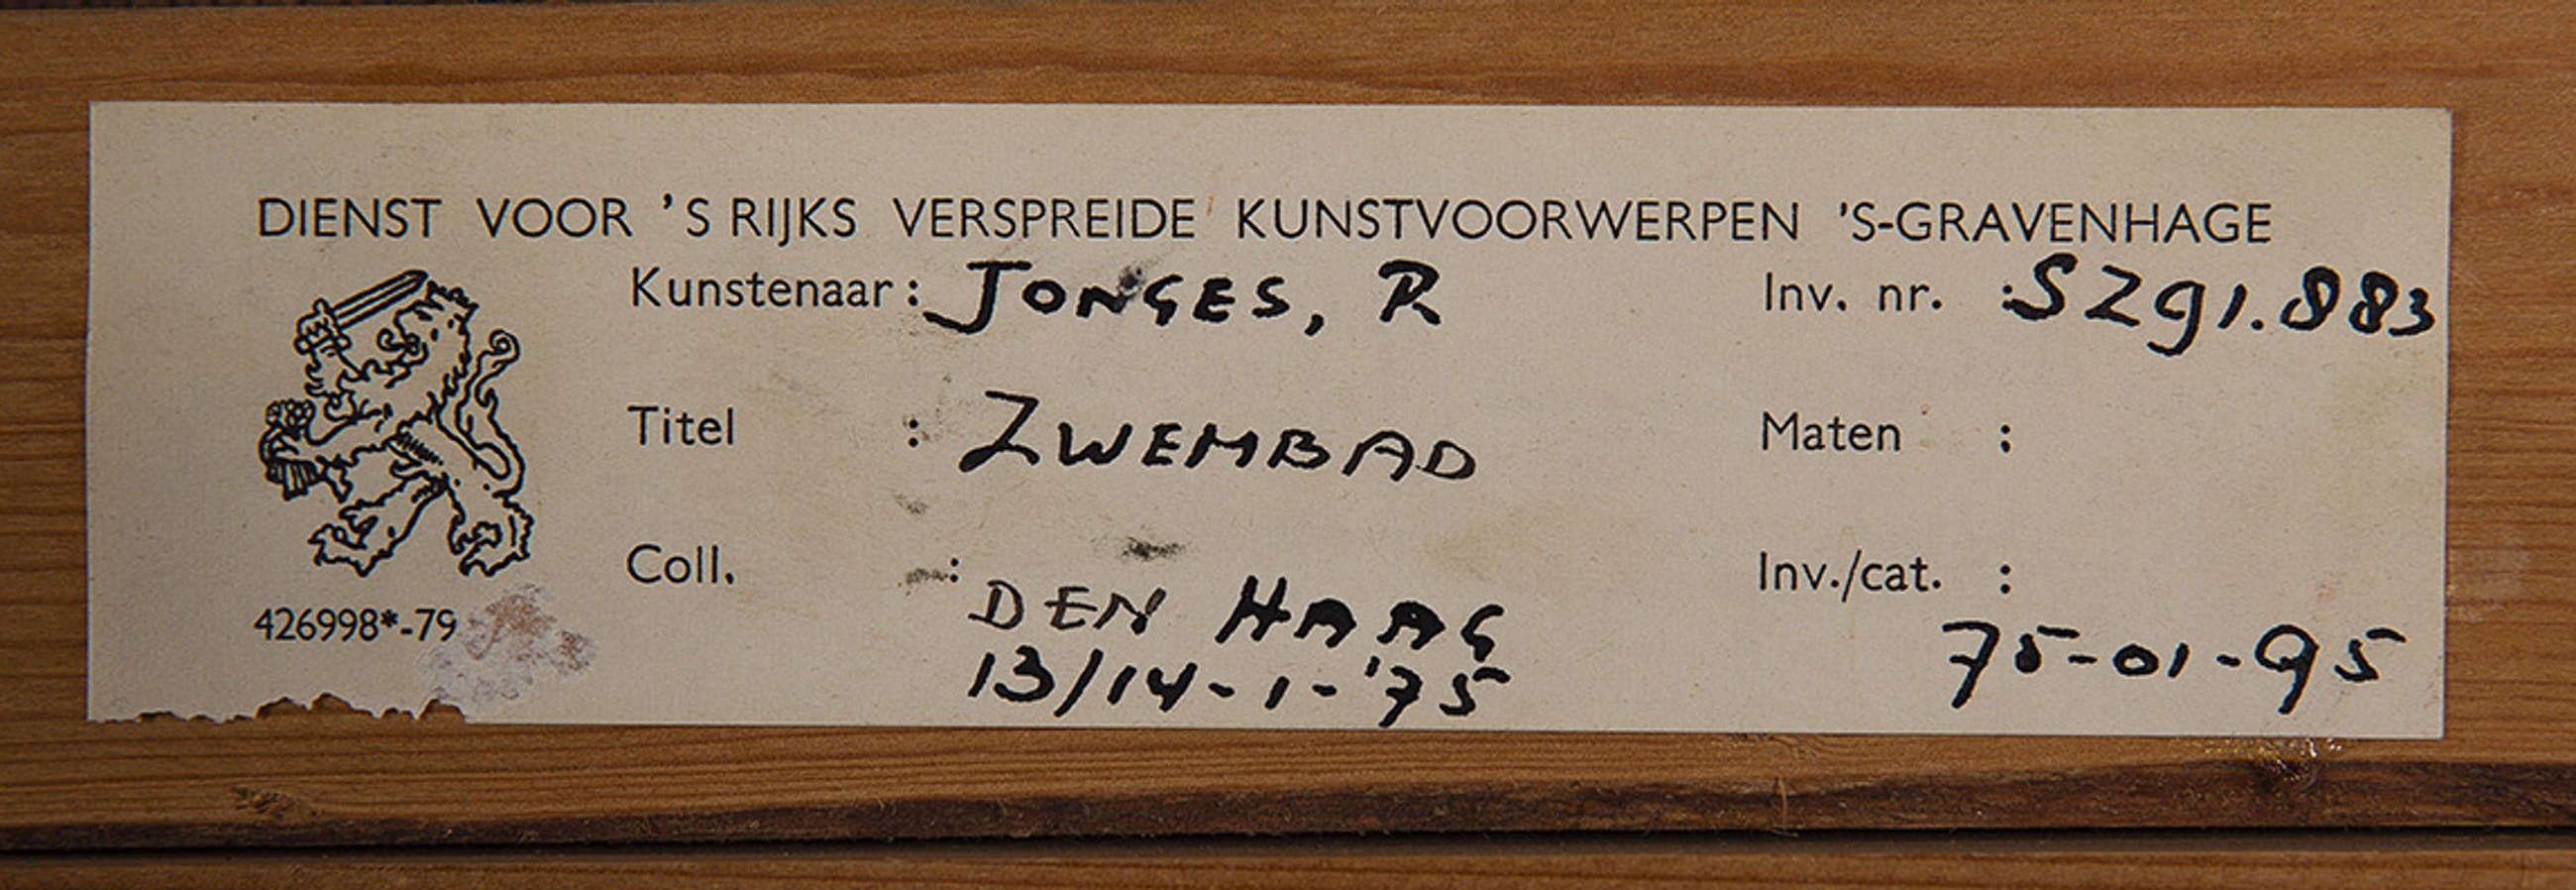 DIENST VOOR 'S RIJKS VERSPREIDE KUNSTVOORWERPEN 'S-GRAVENHAGE
Kunstenaar: JONGES, R Inv. nr. : SZ91.883
Titel : ZWEMBAD Maten :
Coll. : DEN HAAG Inv./cat. :
426998*-79 13/14-1-'75 75-01-95